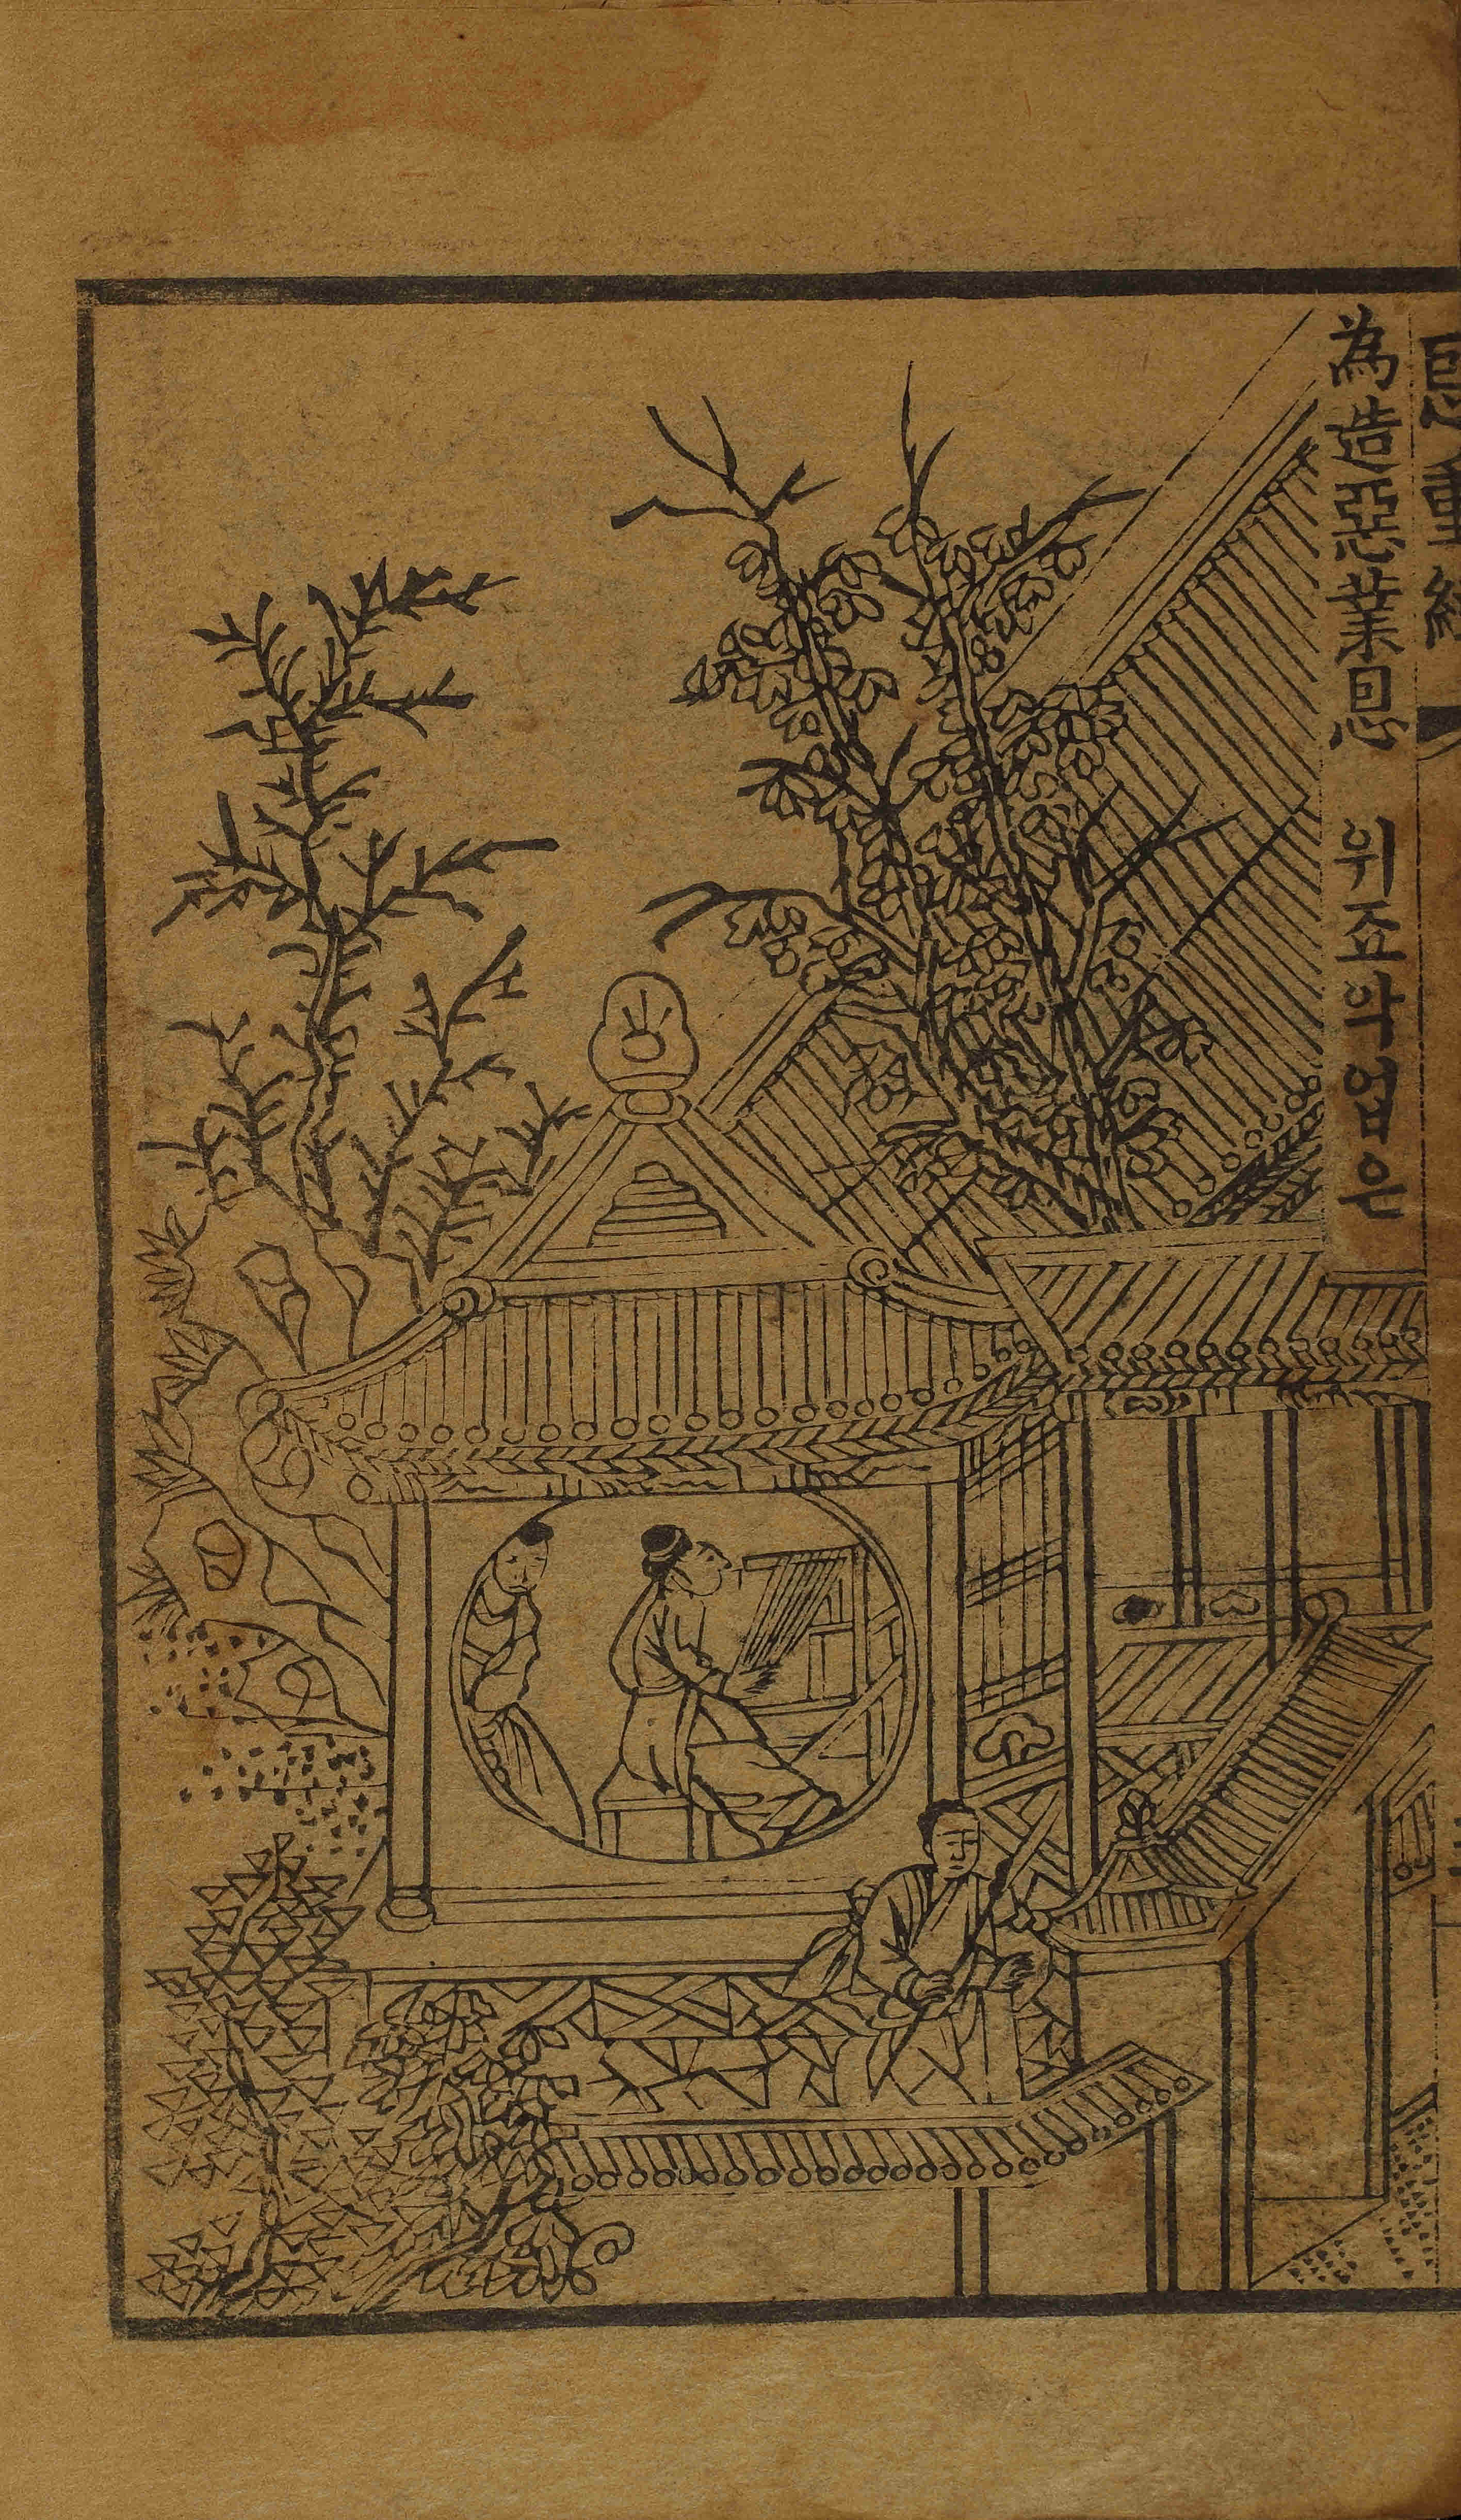 恩重經
為造惡業恩 위죠악업은